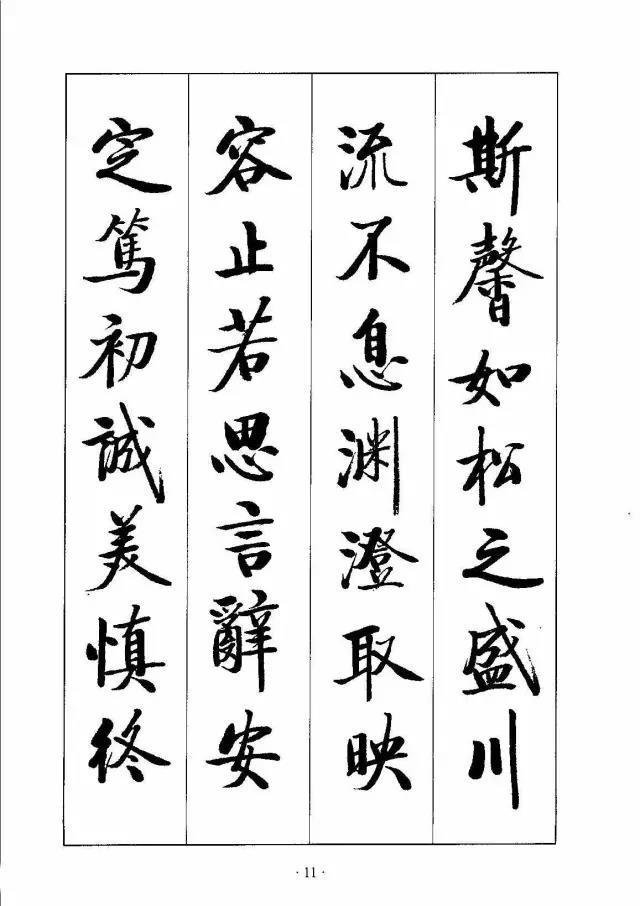 斯馨如松之盛川
流不息渊澄取映
容止若思言辭安
定篤初誠美慎終
· 11 ·